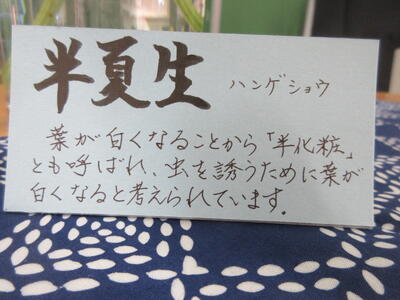 半夏生 ハンゲショウ
葉が白くなることから「半化粧」
とも呼ばれ、虫を誘うために葉が
白くなると考えられています。